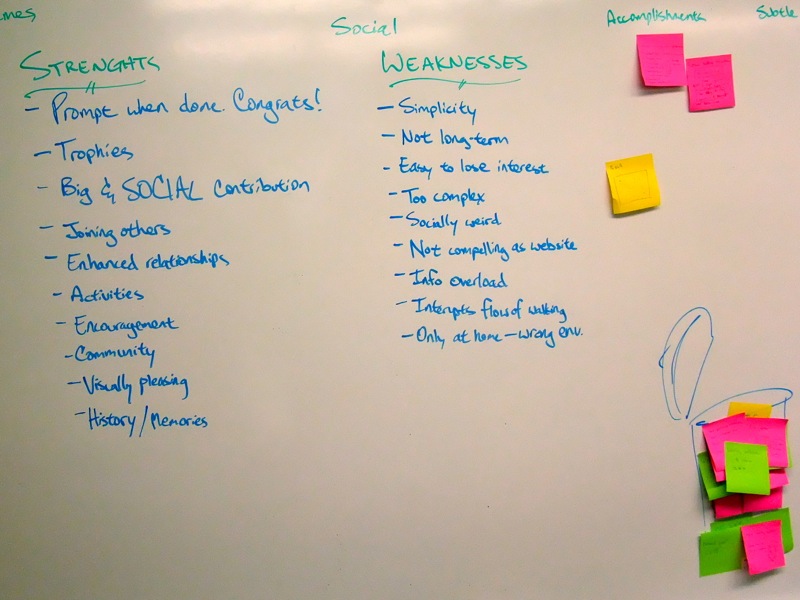 mes
Social
Accomplishments
Subtle
STRENGHTS
- Prompt when done. Congrats!
- Trophies
- Big & SOCIAL contribution
- Joining others
- Enhanced relationships
- Activities
- Encouragement
- Community
- Visually pleasing
- History/Memories
WEAKNESSES
- Simplicity
- Not long-term
- Easy to lose interest
- Too complex
- Socially weird
- Not compelling as website
- Info overload
- Interupts flow of walking
- Only at home - wrong env.